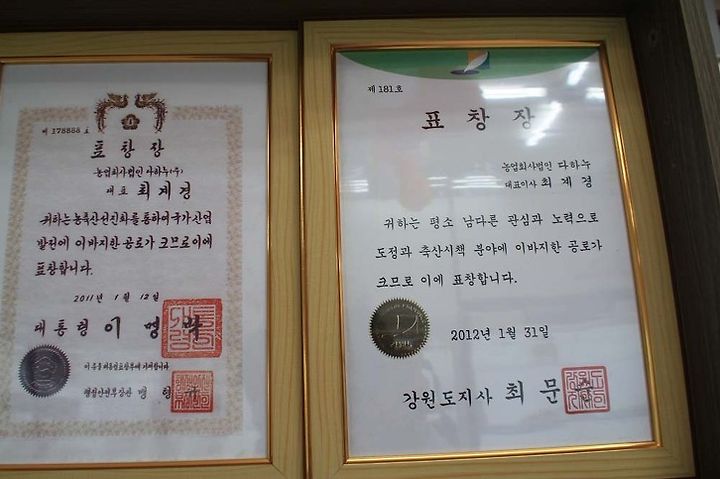 제 178888 호
표 창 장
농업회사법인 다하누(주)
대표 최계경
귀하는 농축산선진화를 통하여 국가산업
발전에 이바지한 공로가 크므로 이에
표창합니다.
2011년 1월 12일
대통령 이 명 박
이 증을 대통령표창부에 기재합니다
행정안전부장관 맹 형 규
제 181호
표 창 장
농업회사법인 다하누
대표이사 최 계 경
귀하는 평소 남다른 관심과 노력으로
도정과 축산시책 분야에 이바지한 공로가
크므로 이에 표창합니다.
2012년 1월 31일
강원도지사 최 문 순